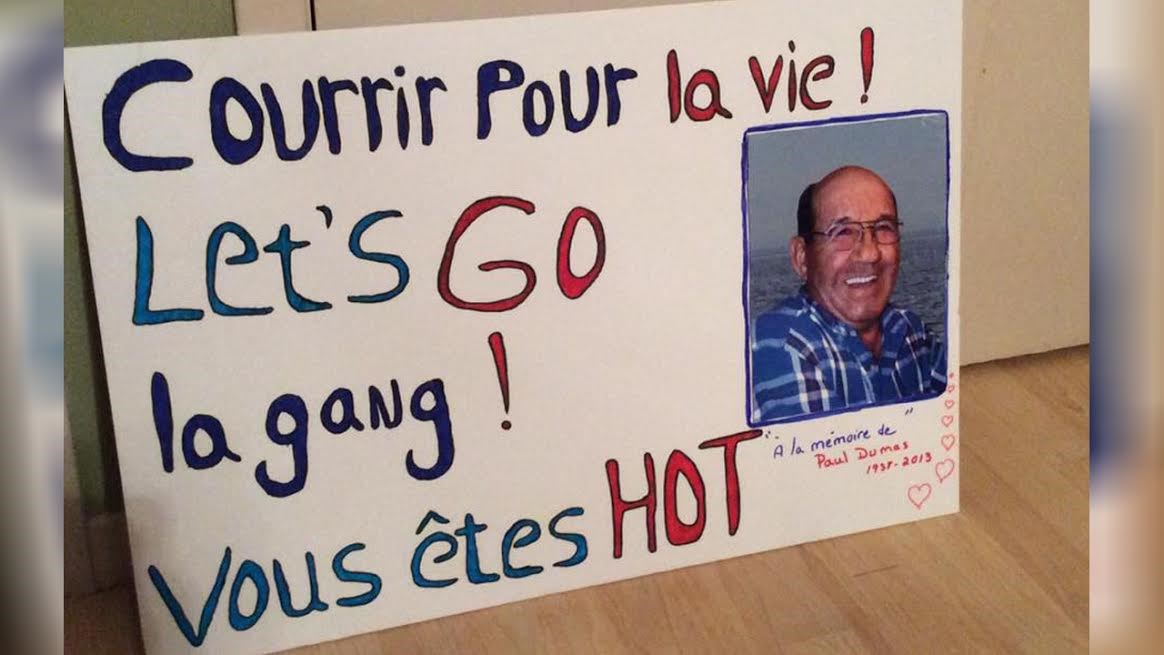 Courrir Pour la vie !
Let's GO
la gang !
Vous êtes HOT
"À la mémoire de"
Paul Dumas
1937-2013